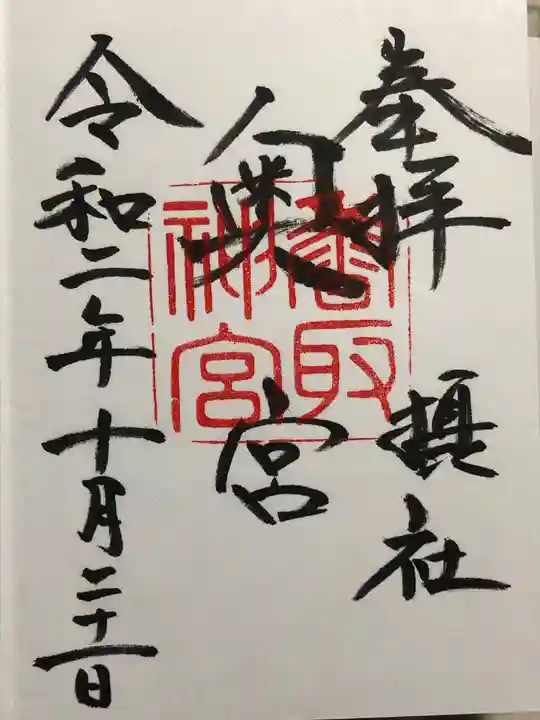 奉拝 摂社
奥宮
令和二年十月二十一日
香取
神宮